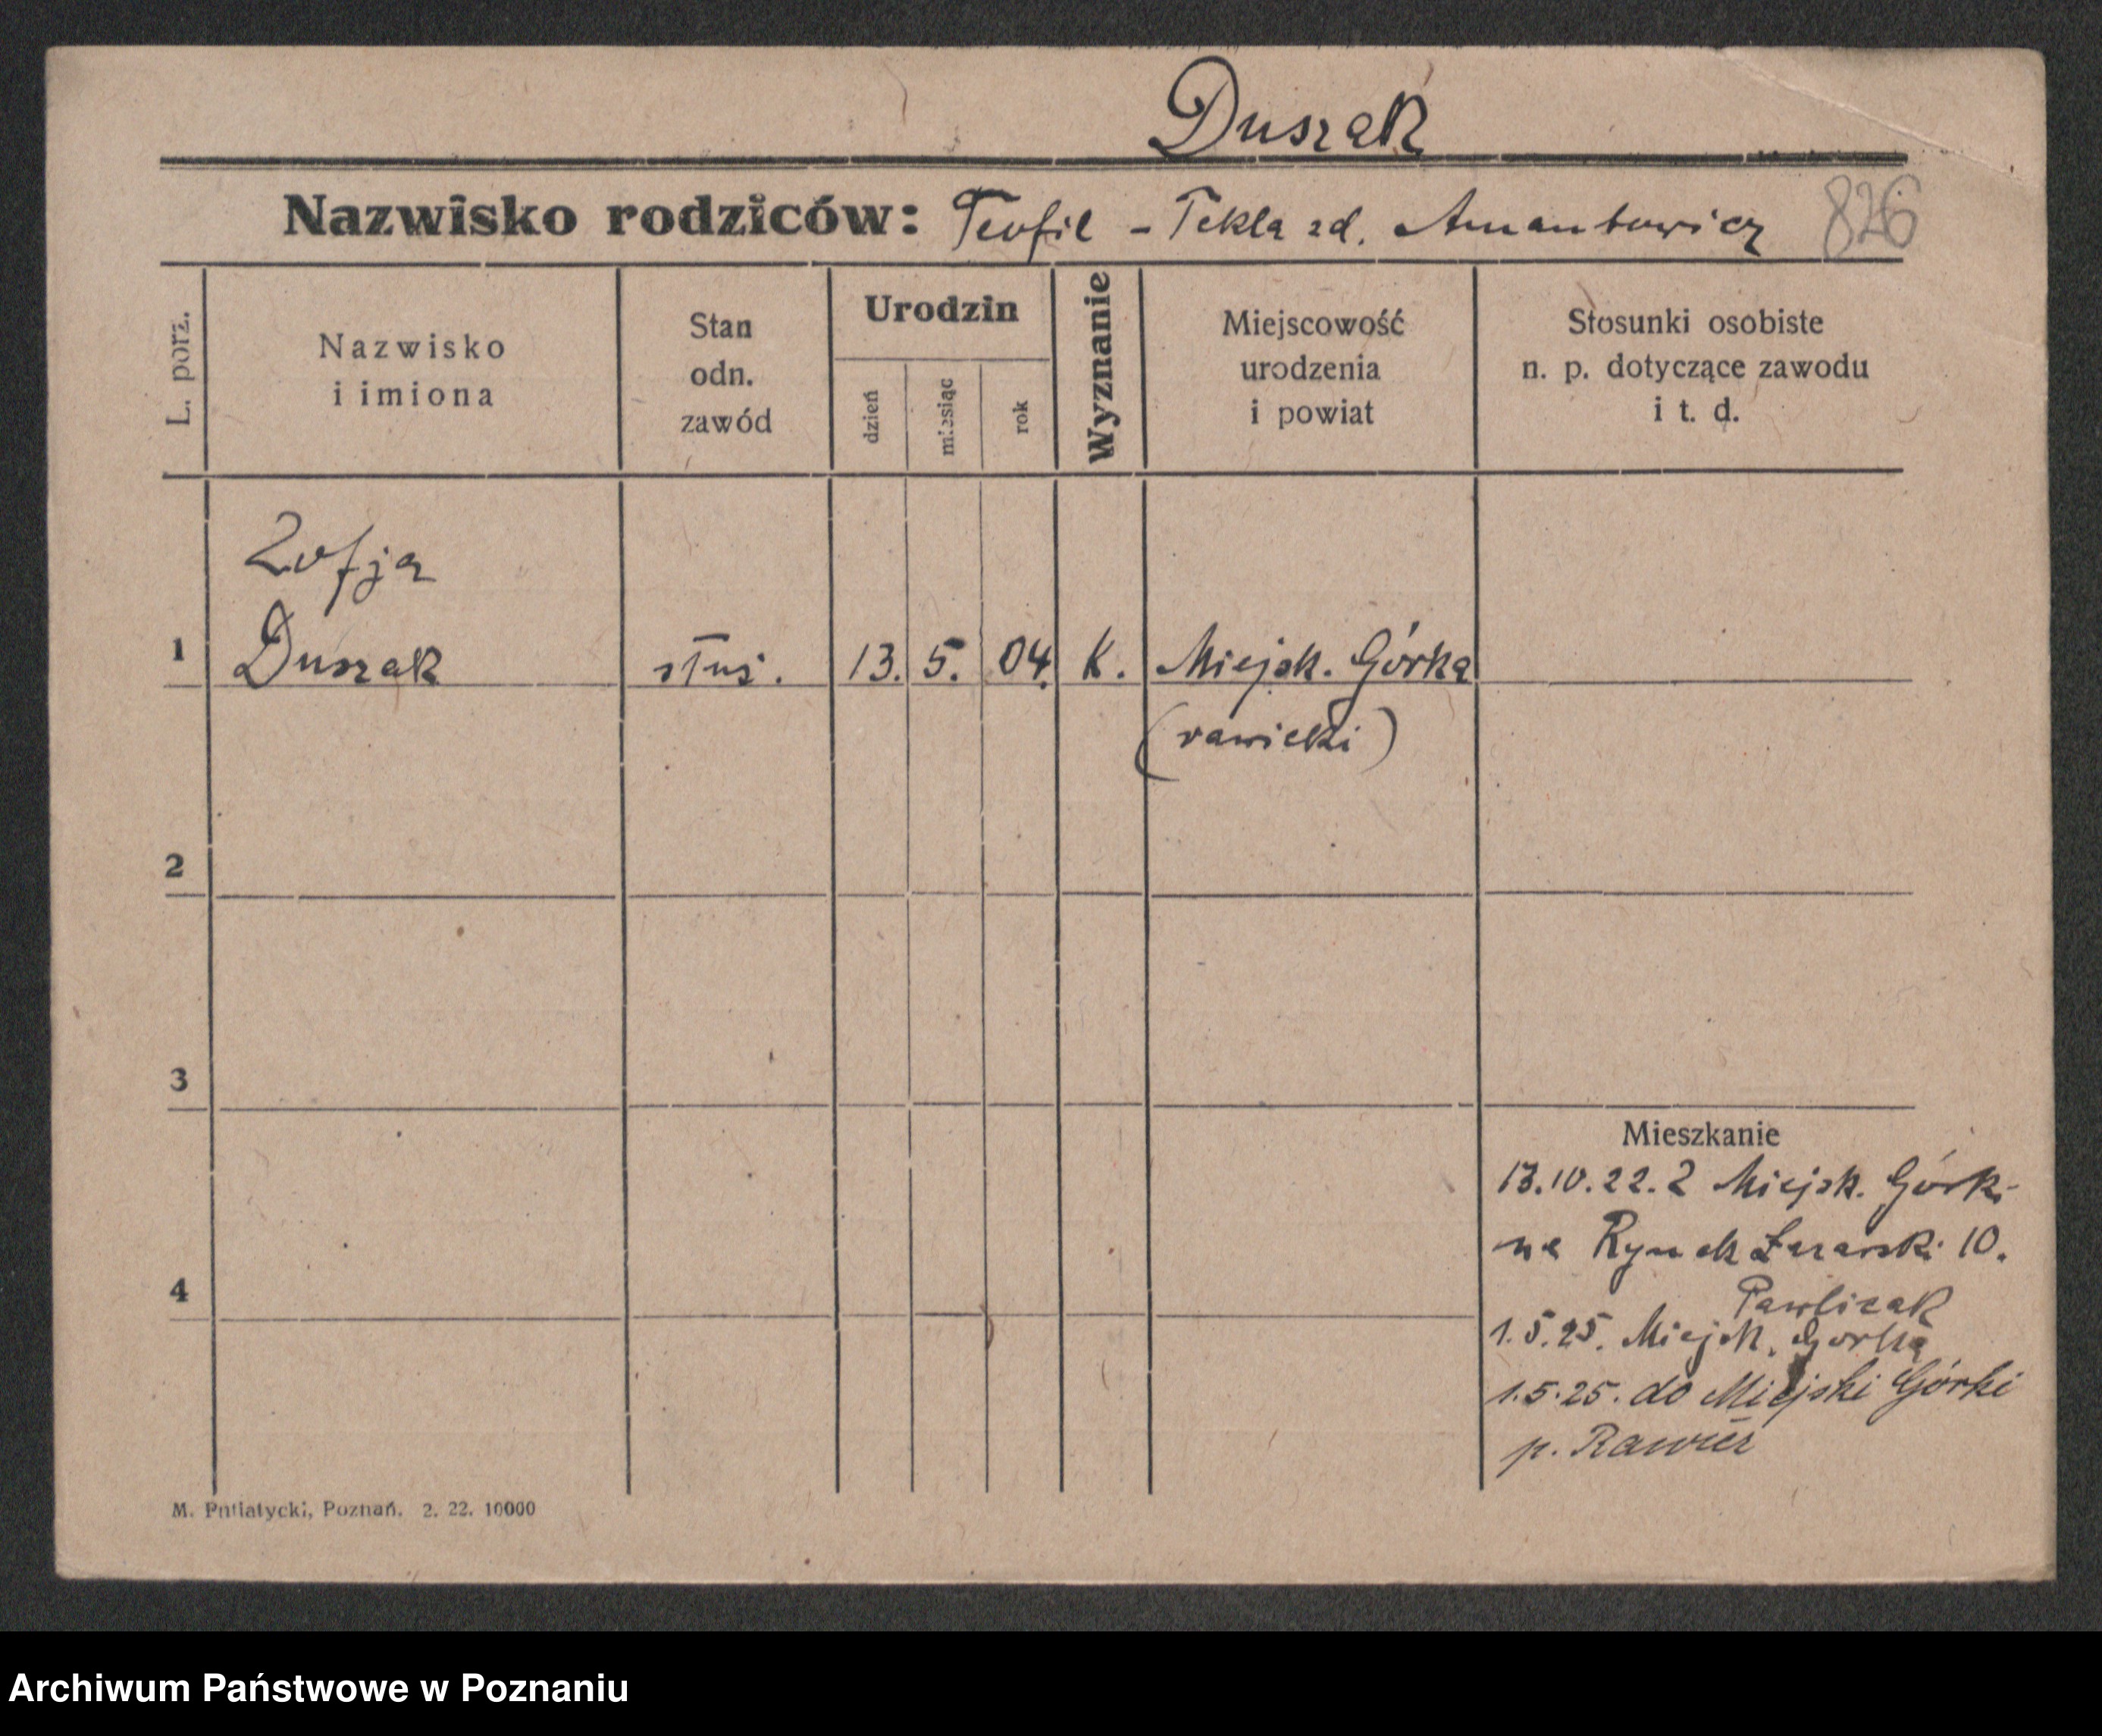 Duszak
Nazwisko rodziców: Teofil - Tekla zd. Amantowicz 826
L. porz.
Nazwisko
i imiona
Stan
odn.
zawód
Urodzin
dzień
miesiąc
rok
Wyznanie
Miejscowość
urodzenia
i powiat
Stosunki osobiste
n. p. dotyczące zawodu
i t. d.
Zofja
1 Duszak służ. 13. 5. 04. K. Miejsk. Górka
(rawicki)
2
3
Mieszkanie
13.10.22. Z Miejsk. Górki
na Rynek Łazarski 10.
4
Pawliczak
1.5.25. Miejsk. Gorka
1.5.25. do Miejski Górki
p. Rawicz
M. Putiatycki, Poznań. 2. 22. 10000
Archiwum Państwowe w Poznaniu